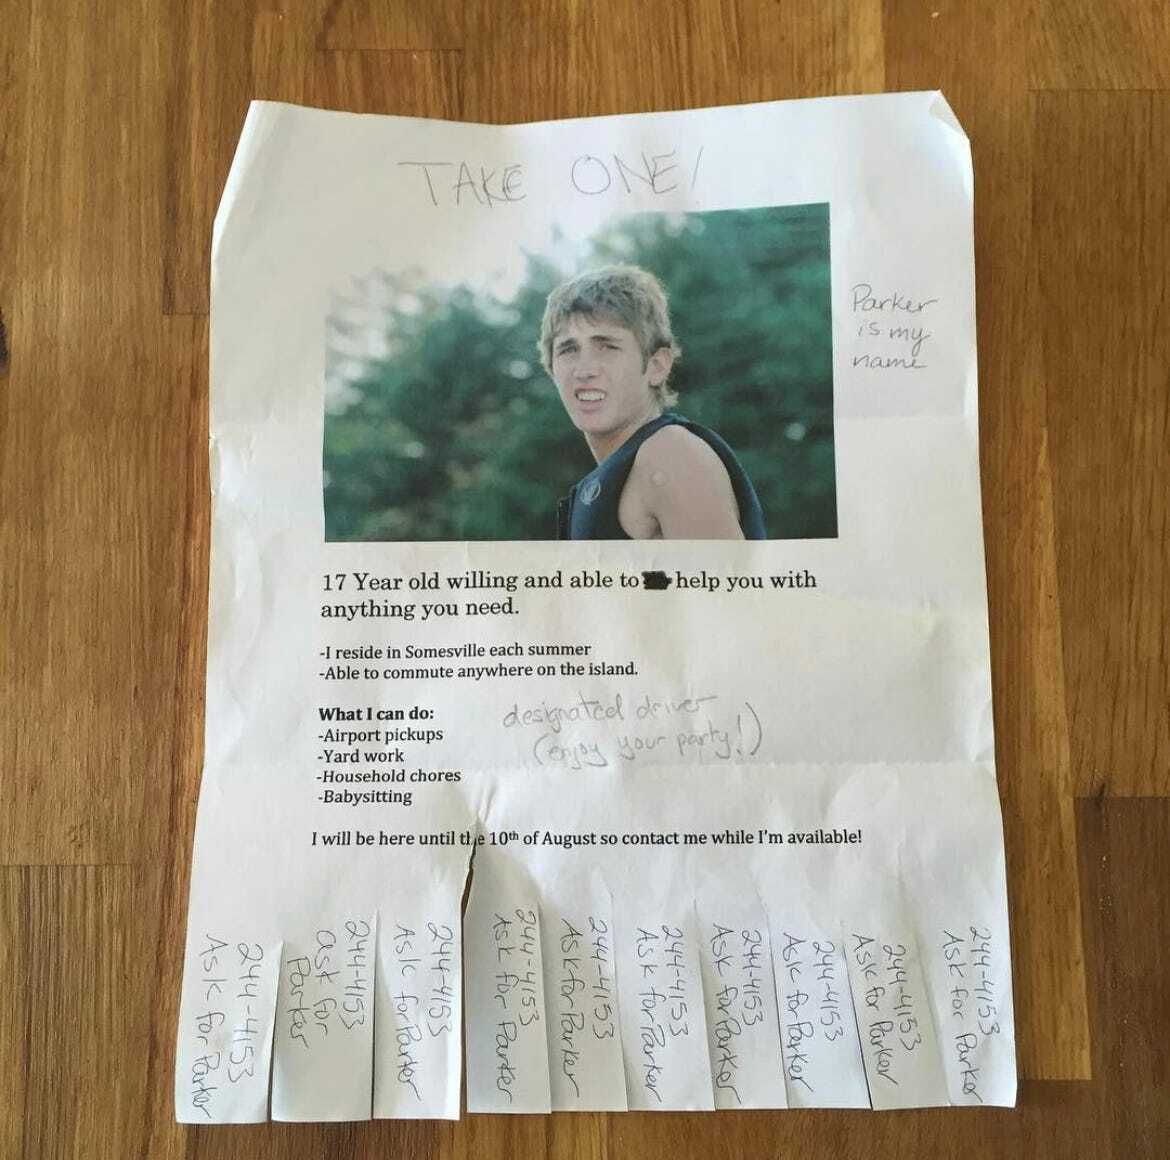 TAKE ONE!
Parker
is my
name
17 Year old willing and able to help you with
anything you need.
-I reside in Somesville each summer
-Able to commute anywhere on the island.
What I can do:
-Airport pickups
-Yard work
-Household chores
-Babysitting
designated driver
(enjoy your party!)
I will be here until the 10th of August so contact me while I'm available!
244-4153
Ask for Parker
244-4153
ask for
Parker
244-4153
Ask for Parker
244-4153
Ask for Parker
244-4153
Ask for Parker
244-4153
Ask for Parker
244-4153
Ask for Parker
244-4153
Ask for Parker
244-4153
Ask for Parker
244-4153
Ask for Parker